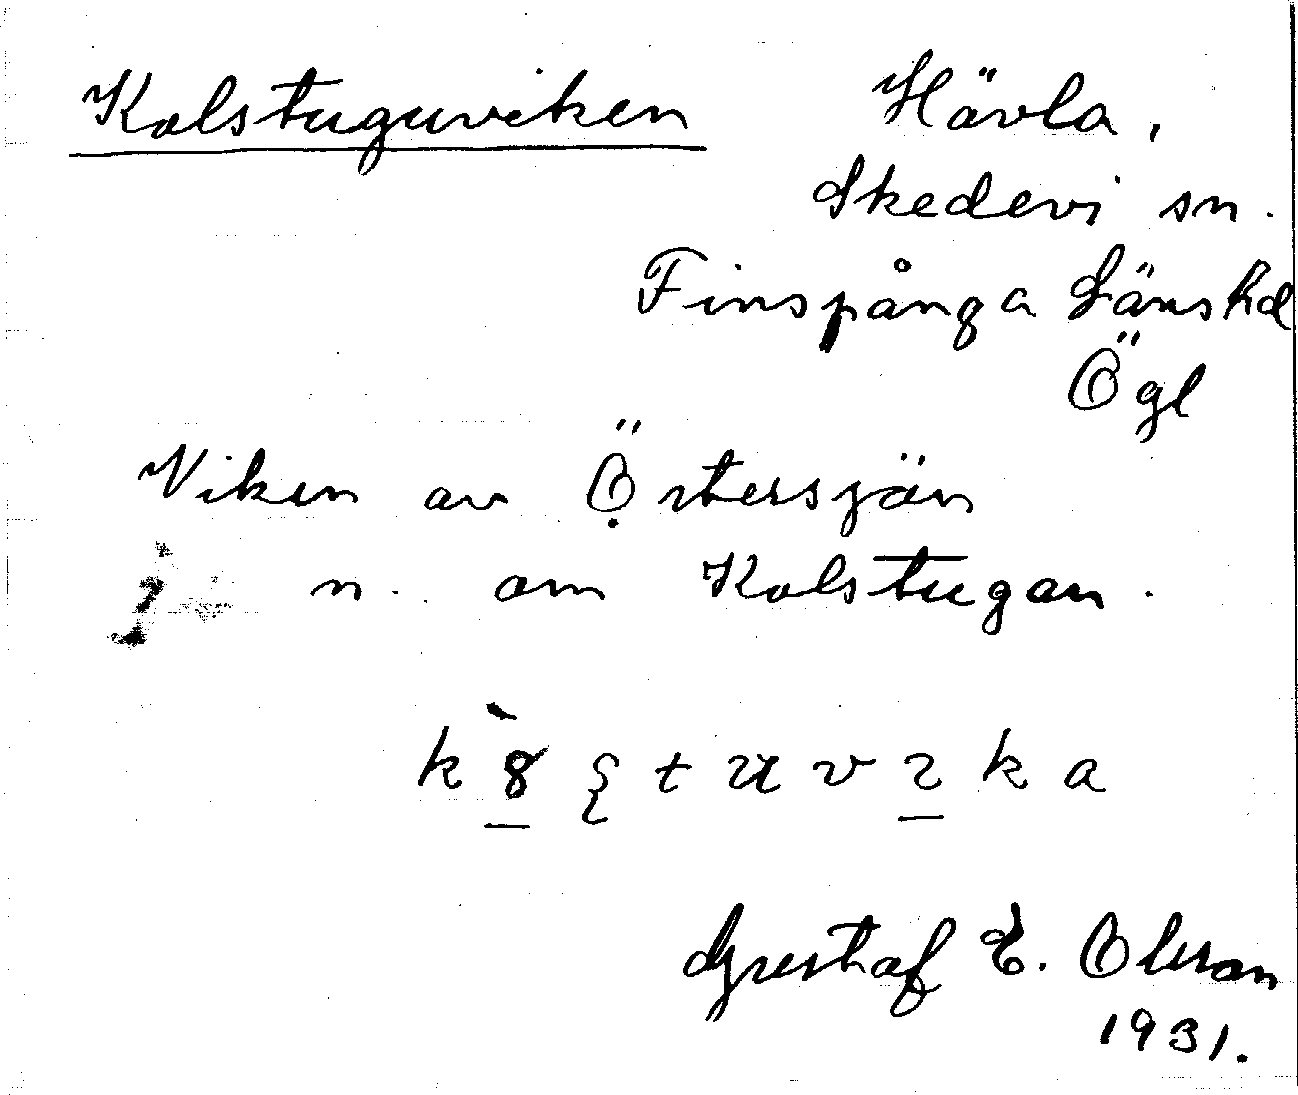 Kolstuguviken
Hävla,
Skedevi sn.
Finspånga Länshd
Ögl
Viken av Östersjön
n. om Kolstugan.
Gustaf E. Olsson
1931.